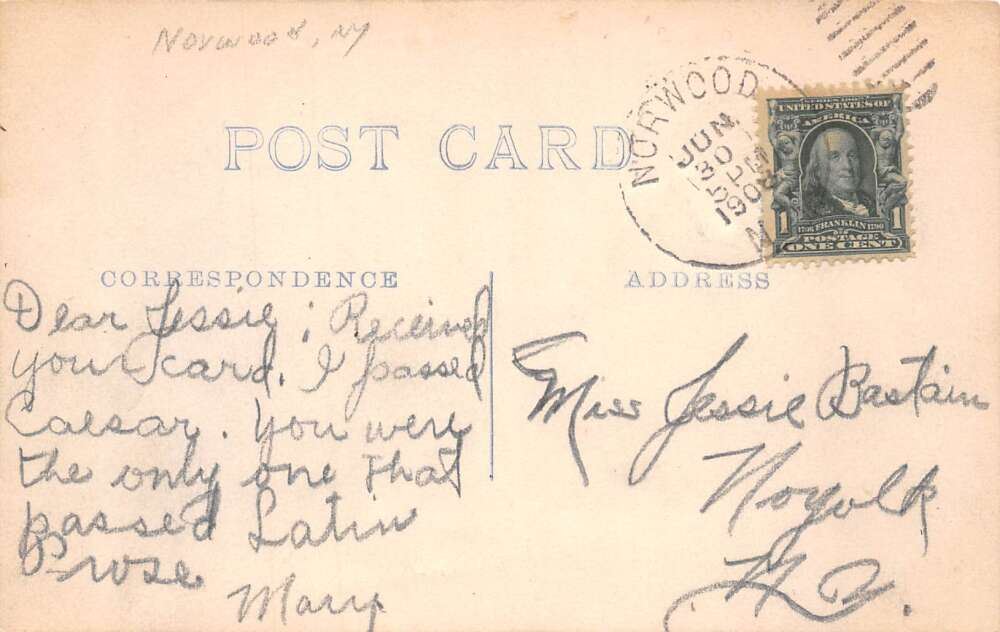 Norwood, NY
POST CARD
NORWOOD
JUN
30
PM
1908
N
SERIES 1902
UNITED STATES OF
AMERICA
1 FRANKLIN 1790 1
POSTAGE
ONE CENT
CORRESPONDENCE
ADDRESS
Dear Jessie; Received
your card. I passed
Caesar. You were
the only one that
passed Latin
Prose
Mary
Miss Jessie Bastain
Norfolk
N.Y.